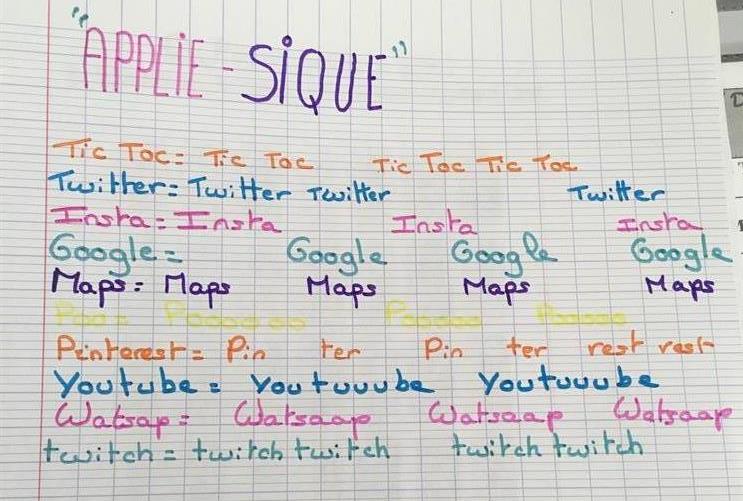 "APPLIE-SIQUE"
Tic Toc = Tic Toc Tic Toc Tic Toc
Twitter = Twitter Twitter Twitter
Insta = Insta Insta Insta
Google = Google Google Google
Maps = Maps Maps Maps Maps
Poo = Poooooo Pooooo Pooooo
Pinterest = Pin ter Pin ter rest rest
Youtube = Youtuuube Youtuuube
Watsap = Watsaap Watsaap Watsaap
twitch = twitch twitch twitch twitch